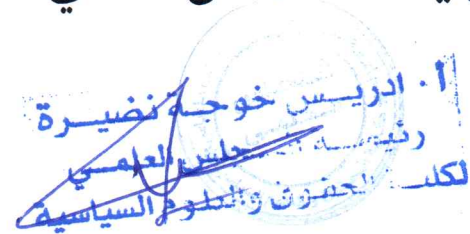 أ. ادريس خوجة نضيرة
رئيسة المجلس العلمي
لكلية الحقوق والعلوم السياسية